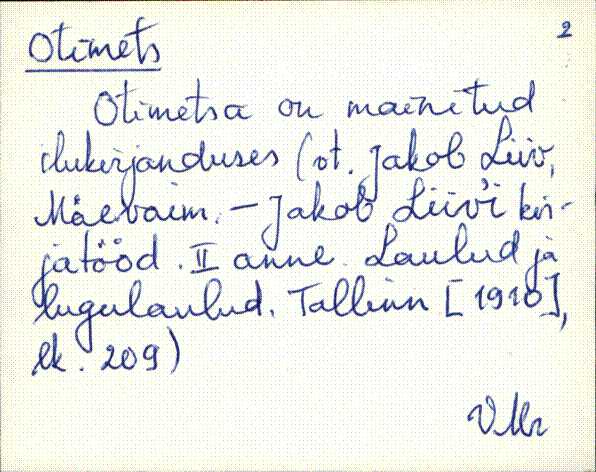 2
Otimets
Otimetsa on mainitud
ilukirjanduses (vt. Jakob Liiv,
Mäevaim. – Jakob Liiv'i kir-
jatööd. II anne. Laulud ja
lugulaulud. Tallinn [1910],
lk. 209)